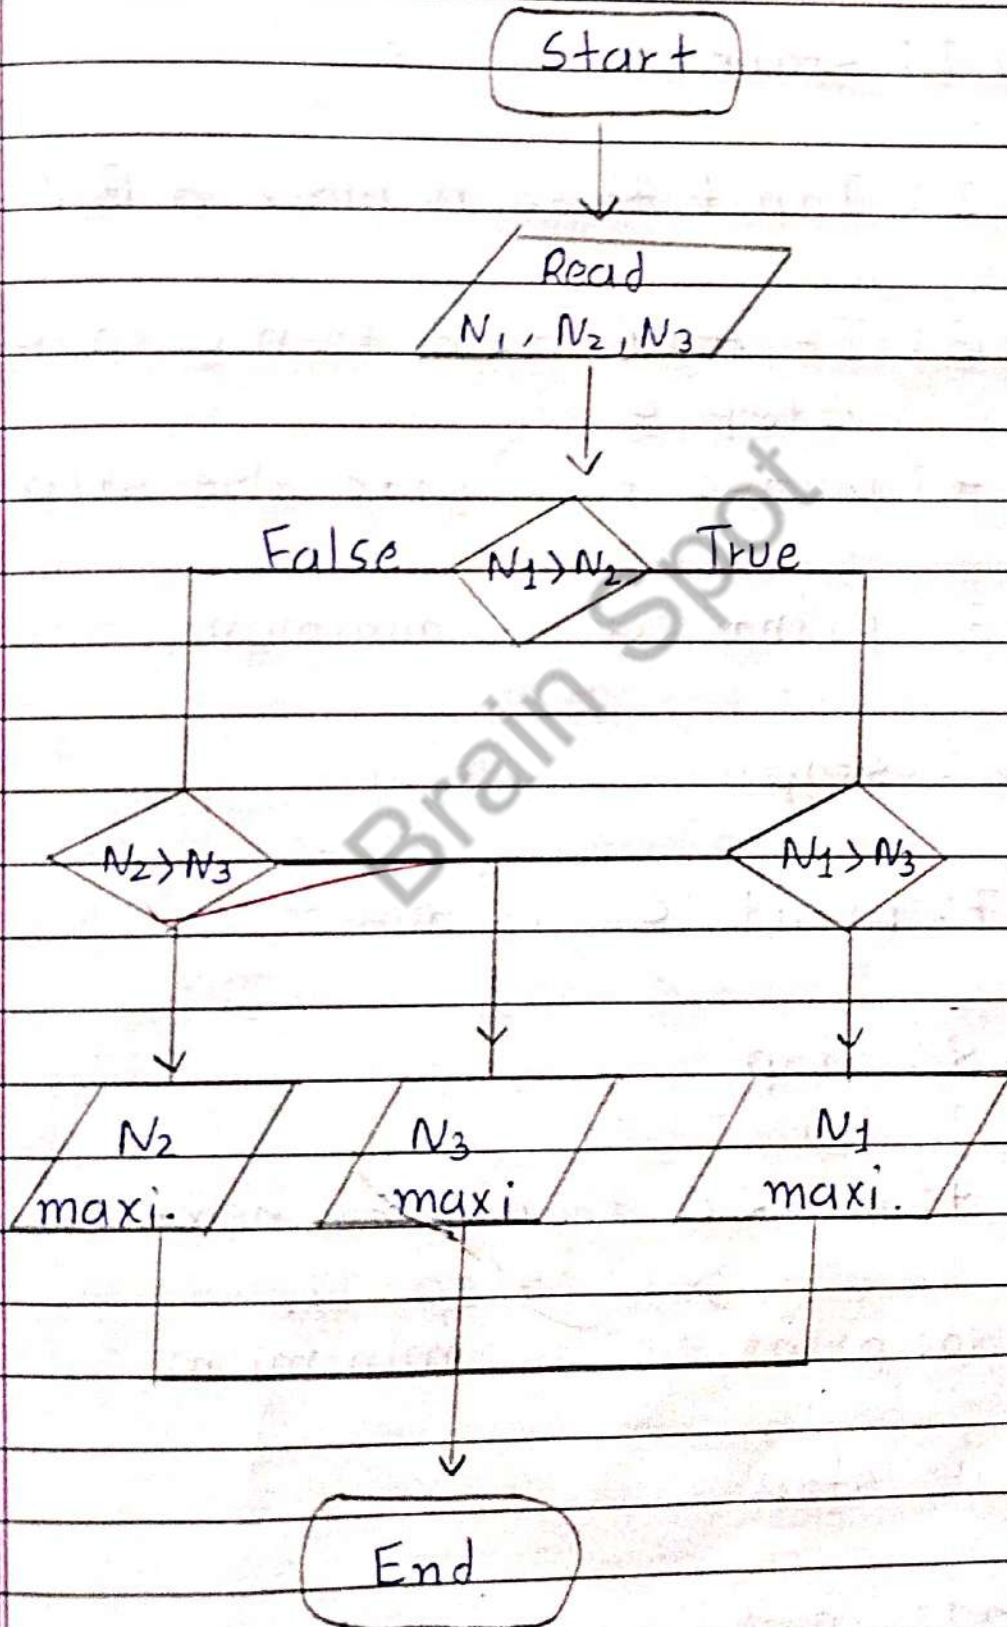 Start
Read
N1, N2, N3
False N1>N2 True
N2>N3 N1>N3
N2 N3 N1
maxi. maxi maxi.
End
Brain Spot